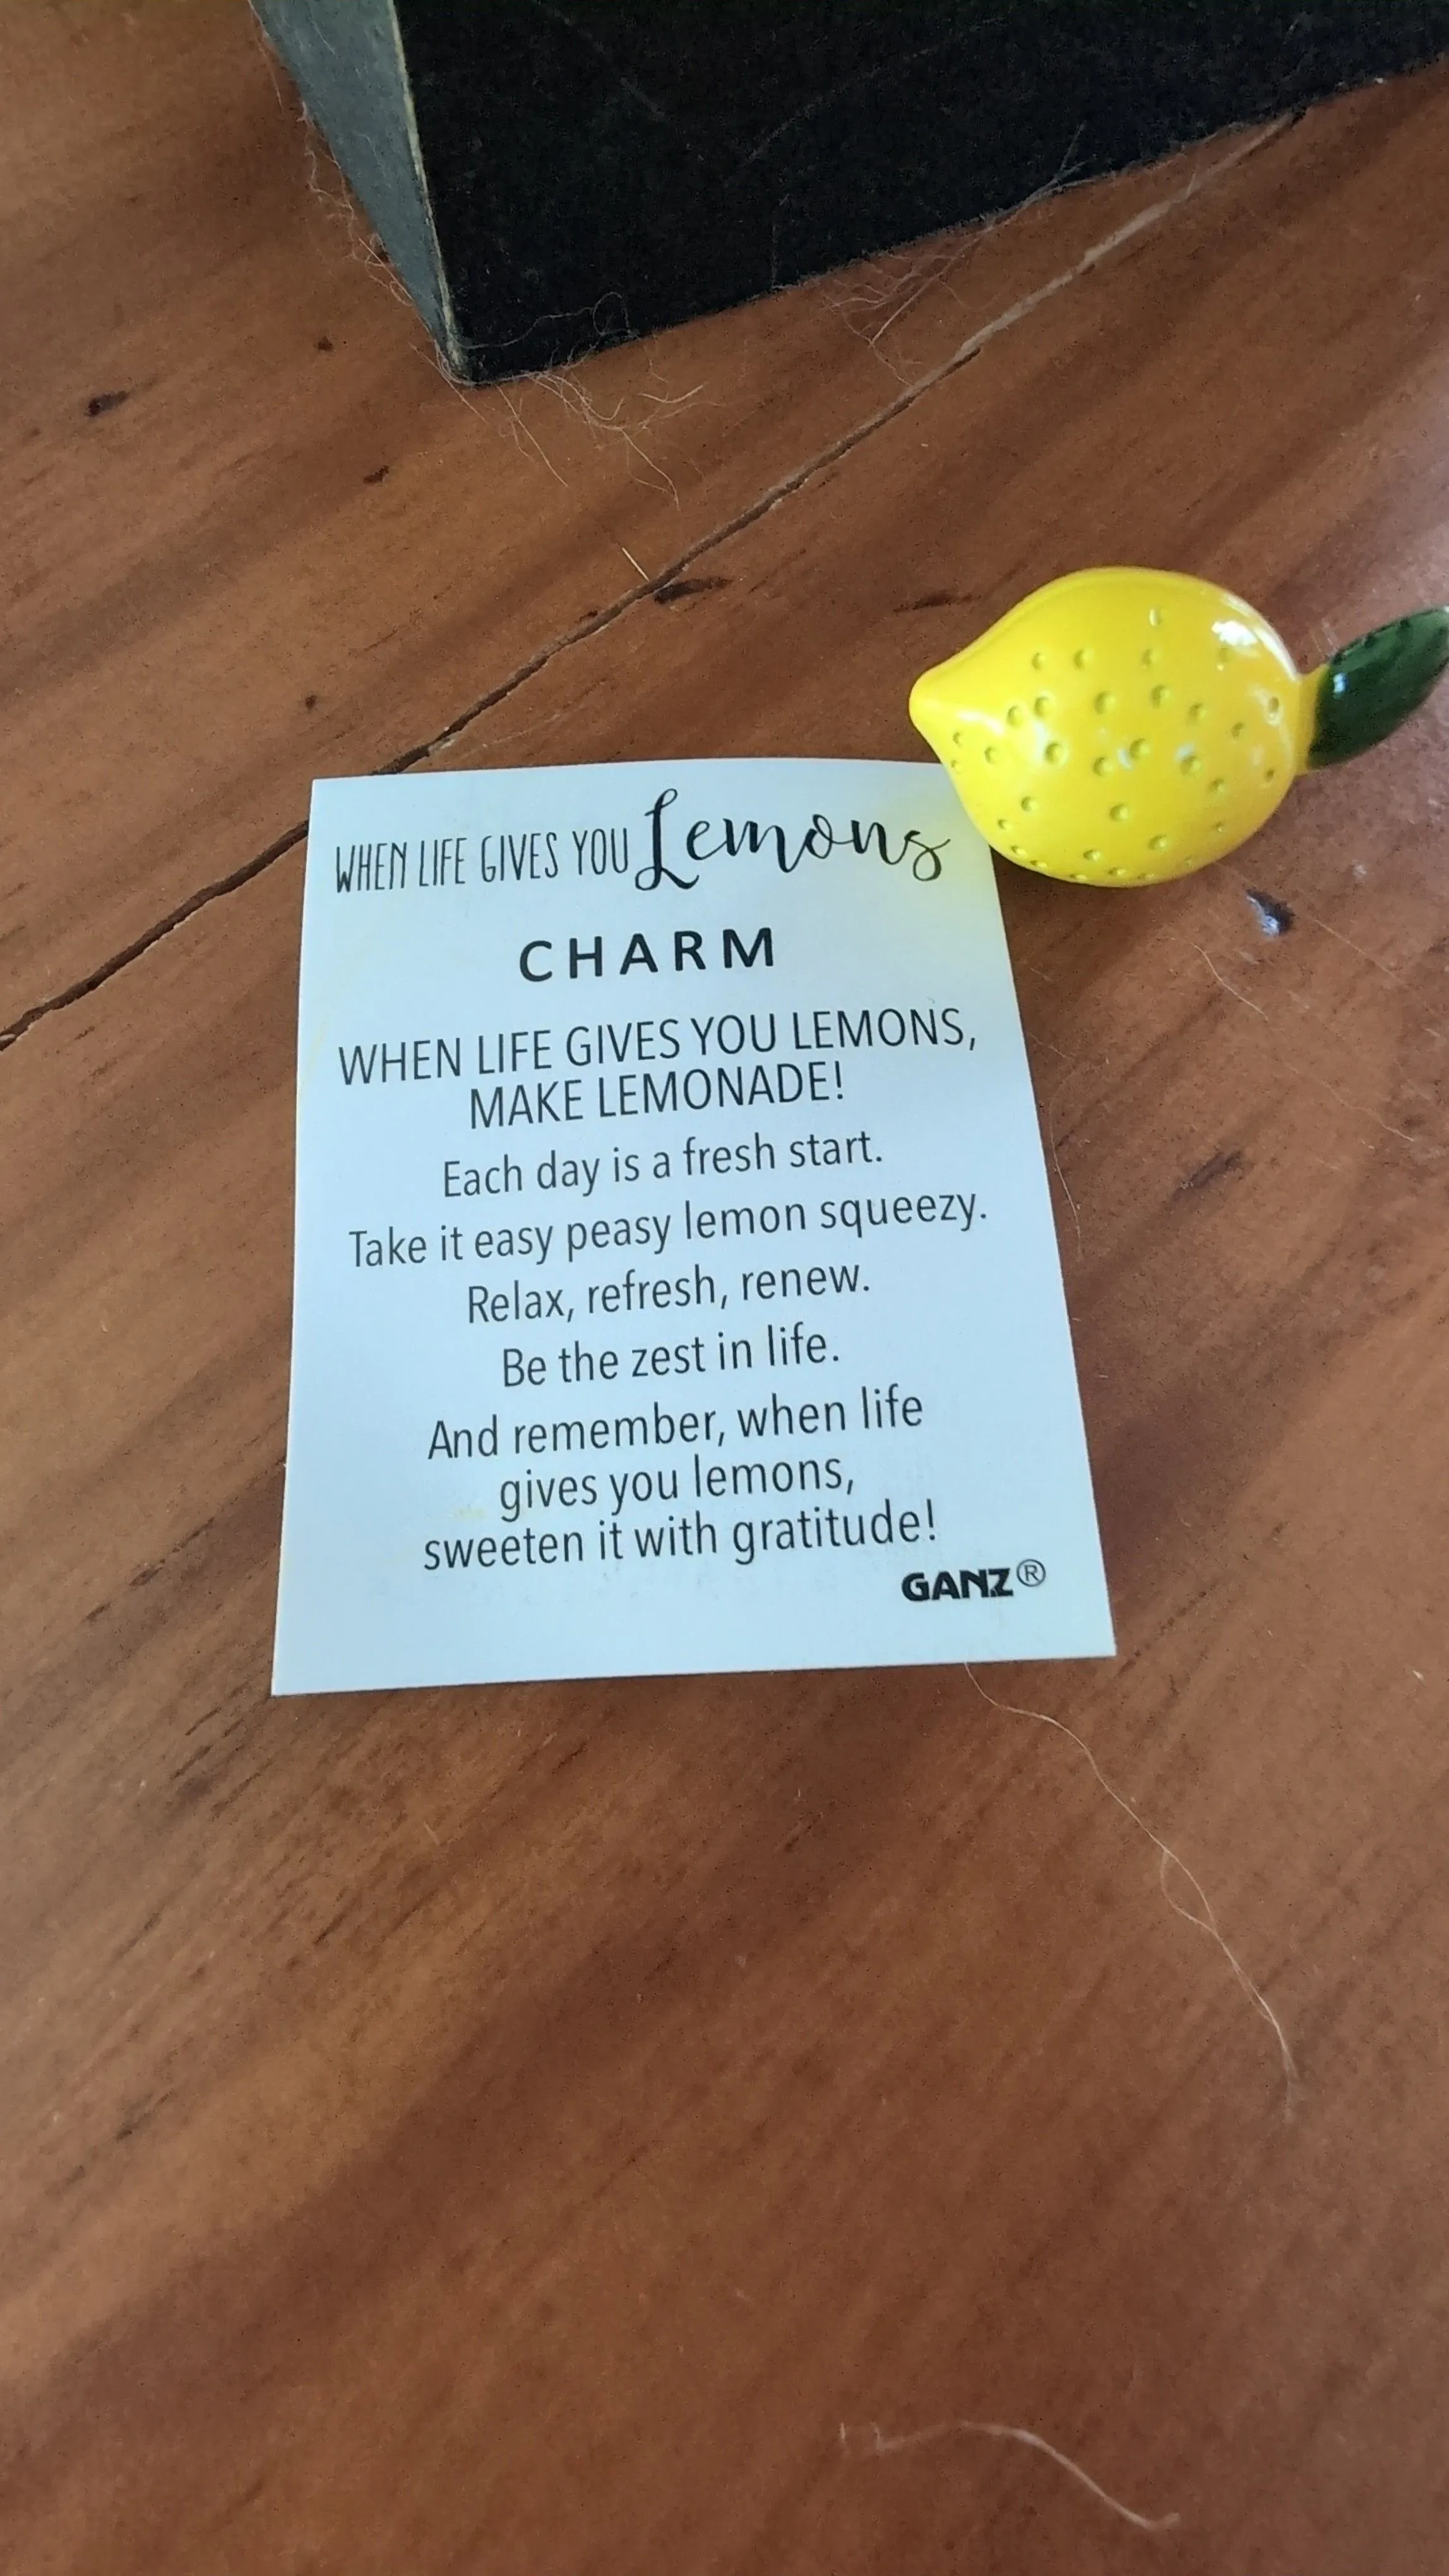 WHEN LIFE GIVES YOU Lemons
CHARM
WHEN LIFE GIVES YOU LEMONS,
MAKE LEMONADE!
Each day is a fresh start.
Take it easy peasy lemon squeezy.
Relax, refresh, renew.
Be the zest in life.
And remember, when life
gives you lemons,
sweeten it with gratitude!
GANZ®